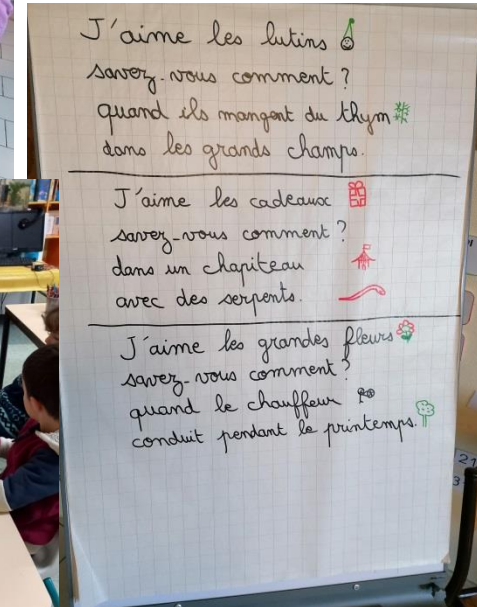 J'aime les lutins
savez-vous comment ?
quand ils mangent du thym
dans les grands champs.
J'aime les cadeaux
savez-vous comment ?
dans un chapiteau
avec des serpents.
J'aime les grandes fleurs
savez-vous comment ?
quand le chauffeur
conduit pendant le printemps.
21
3